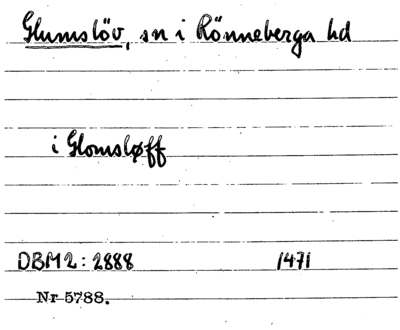 Glumslöv, sn i Rönneberga hd
i Glomsløff
DBM 2: 2888 1471
Nr 5788.